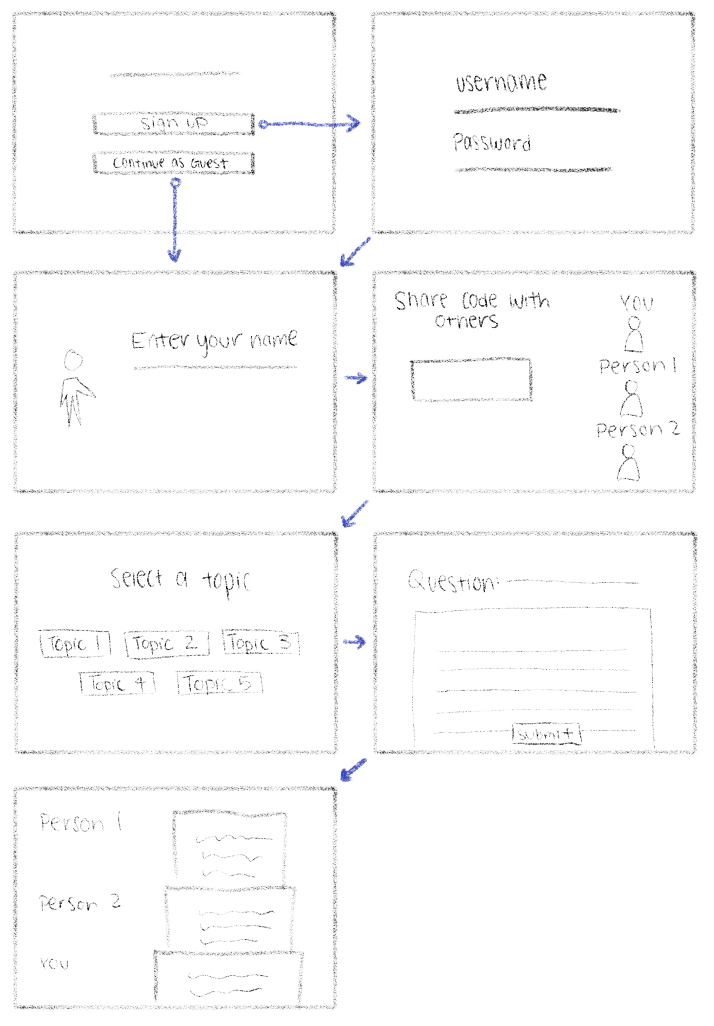 sign up
Continue as Guest
username
Password
Enter your name
Share code with
others
You
Person 1
Person 2
Select a topic
Topic 1
Topic 2
Topic 3
Topic 4
Topic 5
Question:
submit
Person 1
Person 2
You